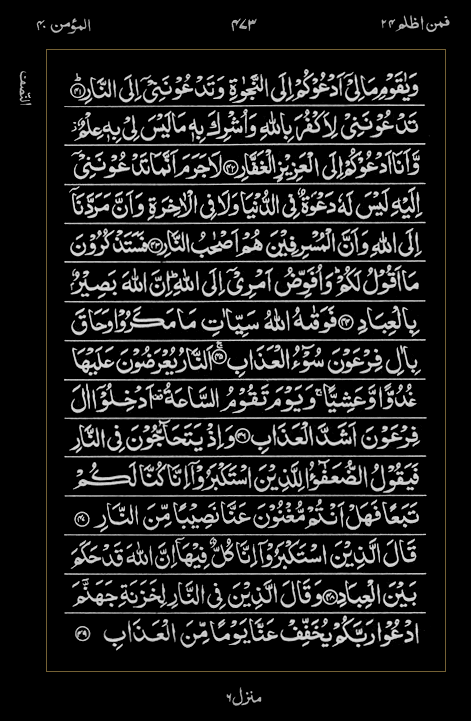 المؤمن ۴۰ ۴۷۳ فمن اظلم ۲۴
النصف
وَيٰقَوْمِ مَا لِيْٓ اَدْعُوْكُمْ اِلَى النَّجٰوةِ وَتَدْعُوْنَنِيْٓ اِلَى النَّارِ ۴۱
تَدْعُوْنَنِيْ لِاَكْفُرَ بِاللّٰهِ وَاُشْرِكَ بِهٖ مَا لَيْسَ لِيْ بِهٖ عِلْمٌ
وَّاَنَا اَدْعُوْكُمْ اِلَى الْعَزِيْزِ الْغَفَّارِ ۴۲ لَا جَرَمَ اَنَّمَا تَدْعُوْنَنِيْٓ
اِلَيْهِ لَيْسَ لَهٗ دَعْوَةٌ فِي الدُّنْيَا وَلَا فِي الْاٰخِرَةِ وَاَنَّ مَرَدَّنَآ
اِلَى اللّٰهِ وَاَنَّ الْمُسْرِفِيْنَ هُمْ اَصْحٰبُ النَّارِ ۴۳ فَسَتَذْكُرُوْنَ
مَآ اَقُوْلُ لَكُمْ وَاُفَوِّضُ اَمْرِيْٓ اِلَى اللّٰهِ اِنَّ اللّٰهَ بَصِيْرٌۢ
بِالْعِبَادِ ۴۴ فَوَقٰىهُ اللّٰهُ سَيِّاٰتِ مَا مَكَرُوْا وَحَاقَ
بِاٰلِ فِرْعَوْنَ سُوْٓءُ الْعَذَابِ ۴۵ اَلنَّارُ يُعْرَضُوْنَ عَلَيْهَا
غُدُوًّا وَّعَشِيًّا وَيَوْمَ تَقُوْمُ السَّاعَةُ اَدْخِلُوْٓا اٰلَ
فِرْعَوْنَ اَشَدَّ الْعَذَابِ ۴۶ وَاِذْ يَتَحَآجُّوْنَ فِي النَّارِ
فَيَقُوْلُ الضُّعَفٰٓؤُا لِلَّذِيْنَ اسْتَكْبَرُوْٓا اِنَّا كُنَّا لَكُمْ
تَبَعًا فَهَلْ اَنْتُمْ مُّغْنُوْنَ عَنَّا نَصِيْبًا مِّنَ النَّارِ ۴۷
قَالَ الَّذِيْنَ اسْتَكْبَرُوْٓا اِنَّا كُلٌّ فِيْهَآ اِنَّ اللّٰهَ قَدْ حَكَمَ
بَيْنَ الْعِبَادِ ۴۸ وَقَالَ الَّذِيْنَ فِي النَّارِ لِخَزَنَةِ جَهَنَّمَ
ادْعُوْا رَبَّكُمْ يُخَفِّفْ عَنَّا يَوْمًا مِّنَ الْعَذَابِ ۴۹
منزل ۶